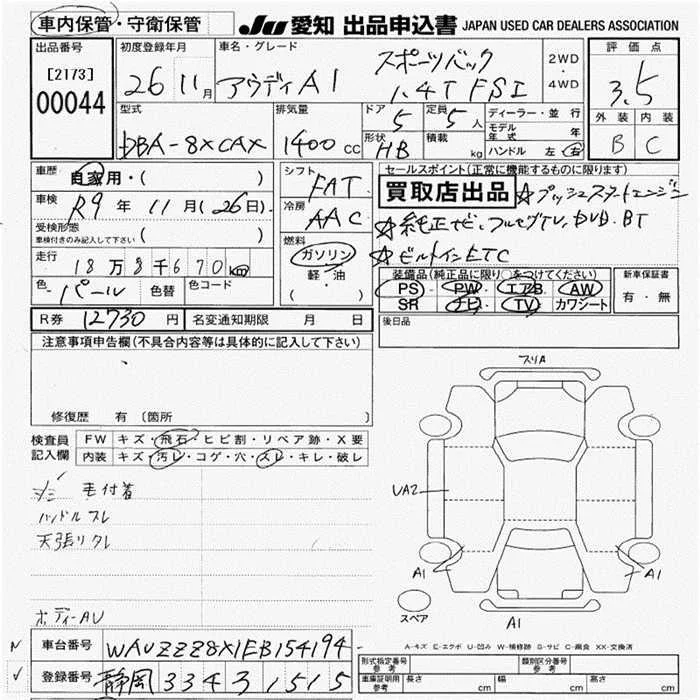 車内保管・守衛保管
JU 愛知 出品申込書 JAPAN USED CAR DEALERS ASSOCIATION
出品番号
[2173]
00044
初度登録年月
26 11月
車名・グレード
アウディA1
スポーツバック
1.4T FSI
2WD
・
4WD
評価点
3.5
外装 内装
B C
型式
DBA-8XCAX
排気量
1400 cc
ドア
5
定員
5人
形状
HB
積載
kg
ディーラー・並行
モデル年式 年
ハンドル 左 右
車歴
自家用・( )
車検
R9年 11月(26日)
受検形態
車検付きのみ記入して下さい ( )
走行
18万8千670km
色
パール
色替
色コード
シフト
FAT
冷房
AAC
燃料
ガソリン
軽・油
( )
セールスポイント(正常に機能するものに限ります)
買取店出品 ☆プッシュスタートエンジン
☆純正ナビ、フルセグTV、DVD、BT
☆ビルトインETC
装備品(純正品に限り○をつけてください)
PS・PW・エアB・AW
SR ナビ・TV カワシート
新車保証書
有・無
R券 12730 円 名変通知期限 月 日
後日品
注意事項申告欄(不具合内容等は具体的に記入して下さい)
修復歴 有〔箇所
検査員
記入欄
FW キズ・飛石・ヒビ割・リペア跡・X要
内装 キズ・汚レ・コゲ・穴・スレ・キレ・破レ
毛付着
ハンドルスレ
天張リタレ
ボディーAU
スリA
UA2
A1
A1
A1
スペア
A-キズ E-エクボ U-凹み W-補修跡 S-サビ C-腐食 XX-交換済
車台番号 WAUZZZ8X1EB154194
登録番号 静岡 334 3 1515
形式指定番号
参考
類別区分番号
参考
車庫証明用
参考
長さ cm 幅 cm 高さ cm